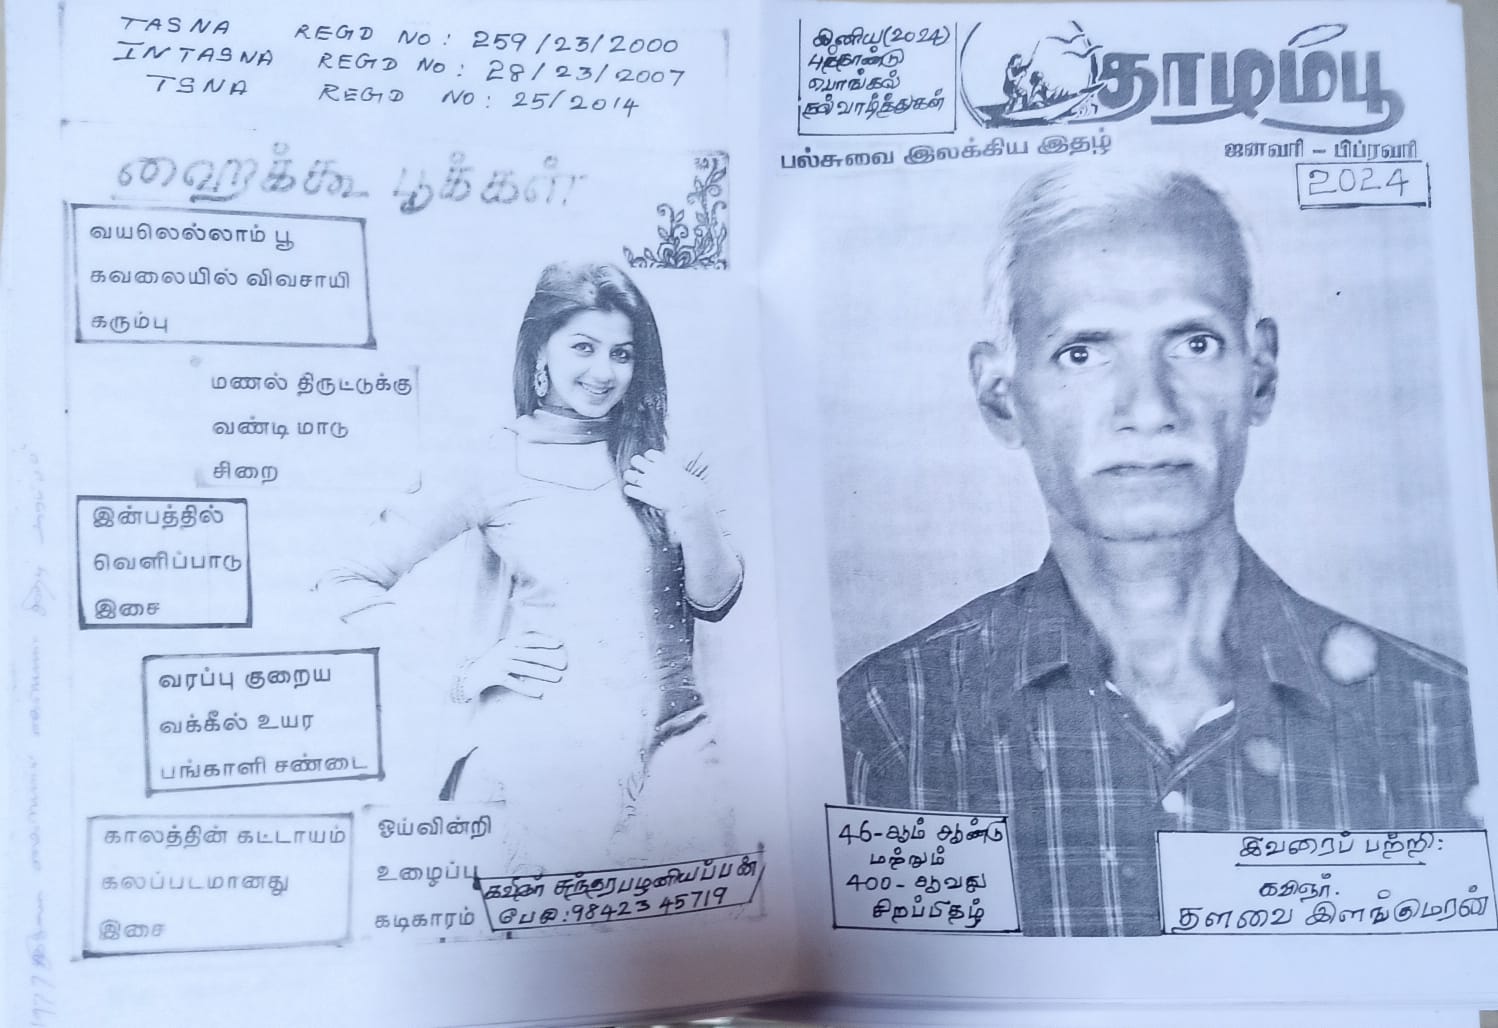 TASNA REGD NO : 259/23/2000
INTASNA REGD NO : 28/23/2007
TSNA REGD NO : 25/2014
ஹைக்கூ பூக்கள்
வயலெல்லாம் பூ
கவலையில் விவசாயி
கரும்பு
மணல் திருட்டுக்கு
வண்டி மாடு
சிறை
இன்பத்தில்
வெளிப்பாடு
இசை
வரப்பு குறைய
வக்கீல் உயர
பங்காளி சண்டை
காலத்தின் கட்டாயம்
கலப்படமானது
இசை
ஓய்வின்றி
உழைப்பு
கடிகாரம்
கவிஞர் சுந்தரபழனியப்பன்
பேச : 98423 45719
இனிய (2024)
புத்தாண்டு
பொங்கல்
நல்வாழ்த்துகள்
தாழம்பூ
பல்சுவை இலக்கிய இதழ்
ஜனவரி – பிப்ரவரி
2024
46-ஆம் ஆண்டு
மற்றும்
400-ஆவது
சிறப்பிதழ்
இவரைப் பற்றி:
கவிஞர்.
தளவை இளங்குமரன்